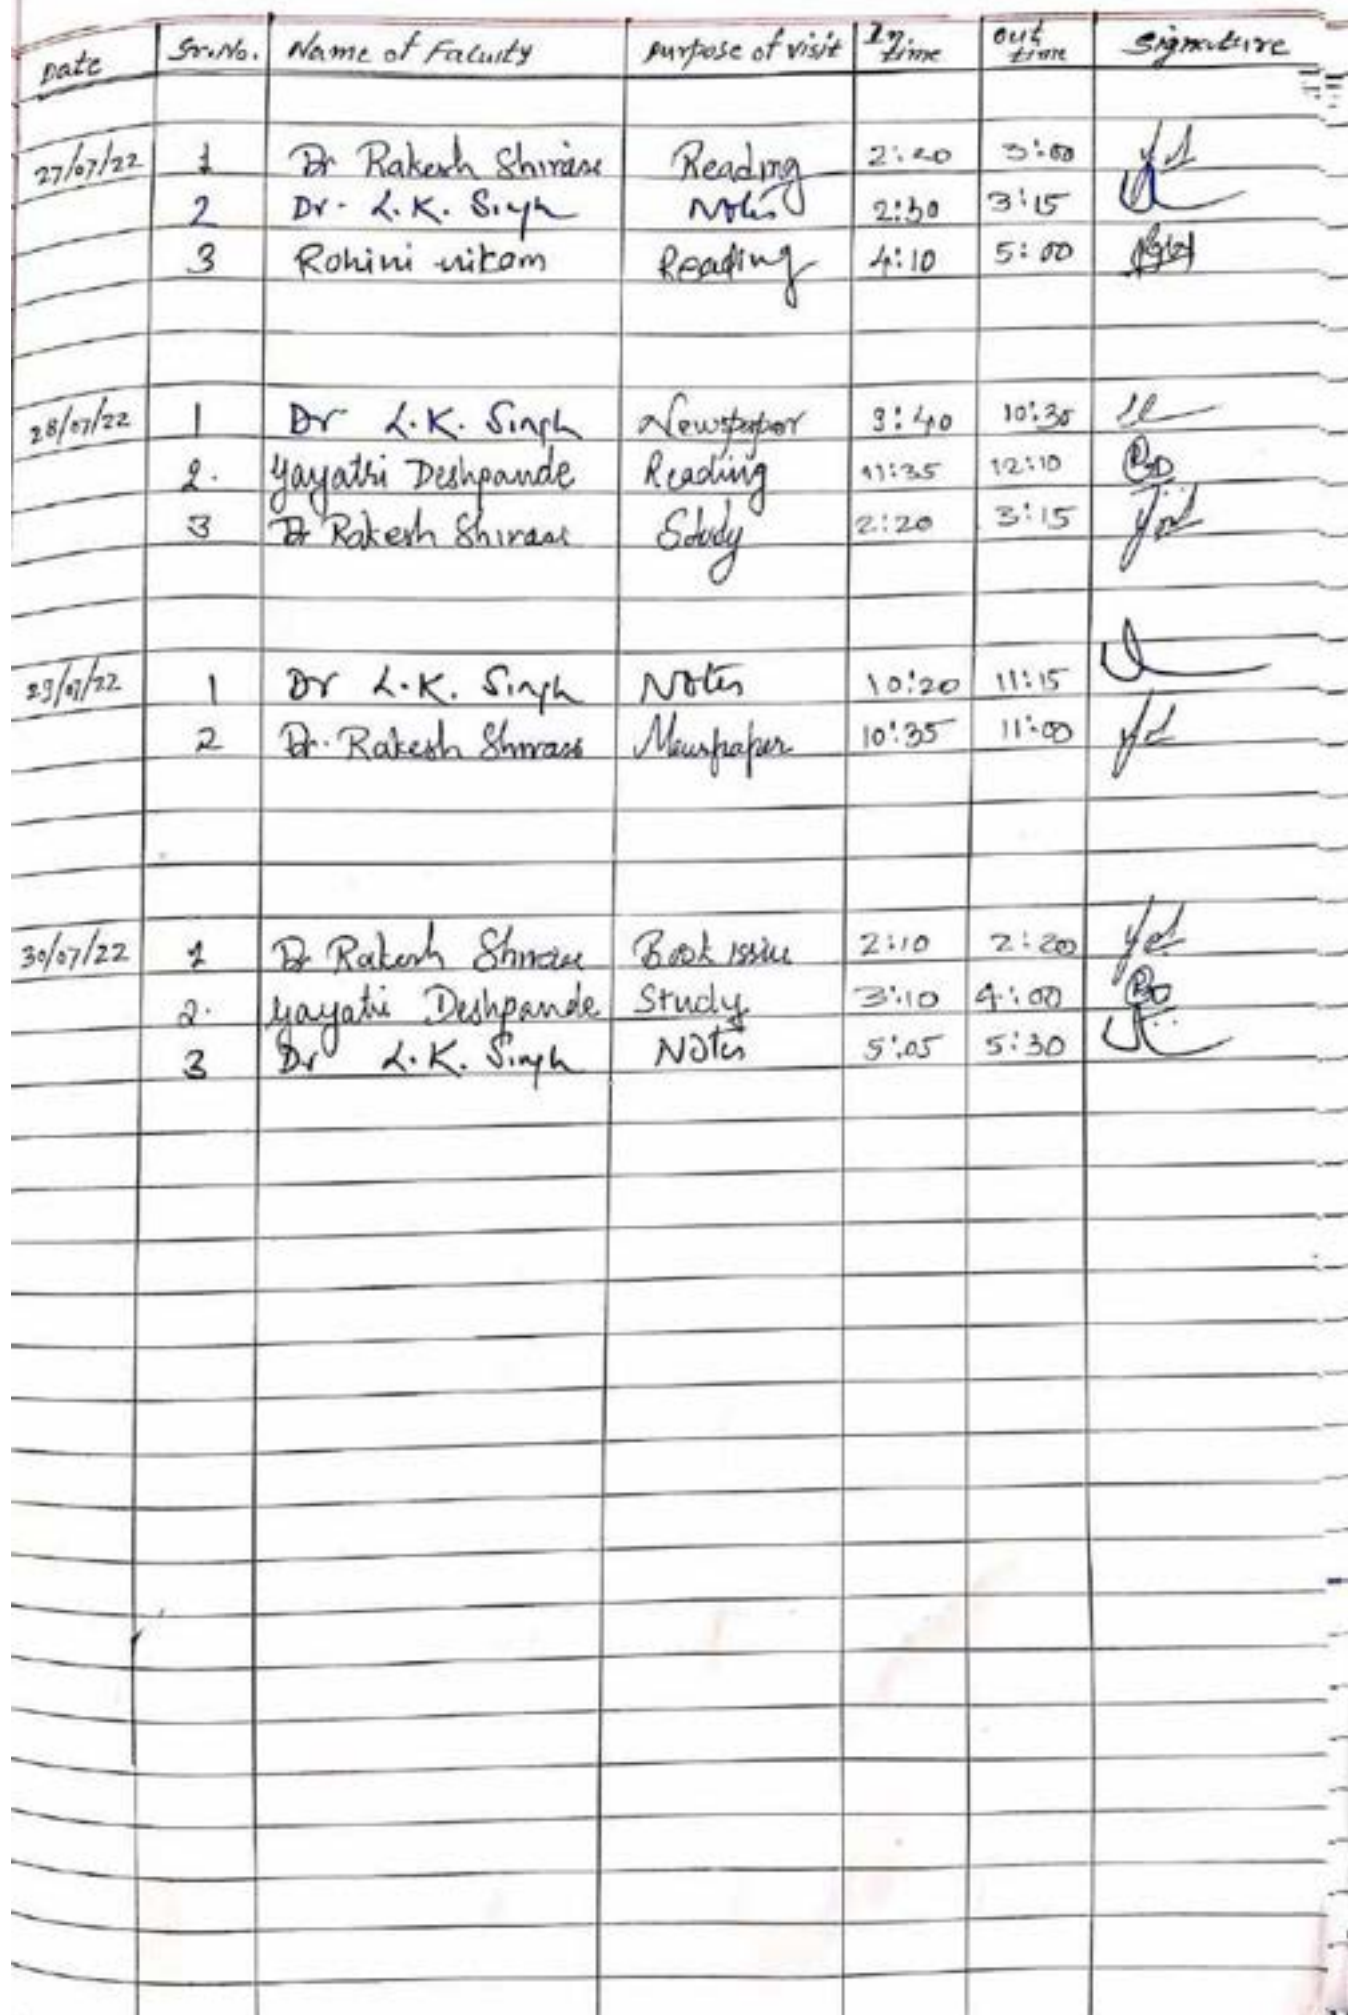 Date Sr.No. Name of Faculty purpose of visit In time out time Signature
27/07/22 1 Dr Rakesh Shirase Reading 2:20 3:00
2 Dr. L.K. Singh Notes 2:30 3:15
3 Rohini nikam Reading 4:10 5:00
28/07/22 1 Dr L.K. Singh Newspaper 9:40 10:30
2. Gayatri Deshpande Reading 11:35 12:10
3 Dr Rakesh Shirase Study 2:20 3:15
29/07/22 1 Dr L.K. Singh Notes 10:20 11:15
2 Dr. Rakesh Shirase Newspaper 10:35 11:00
30/07/22 1 Dr Rakesh Shirase Book issue 2:10 2:20
2. Gayatri Deshpande Study 3:10 4:00
3 Dr L.K. Singh Notes 5:05 5:30